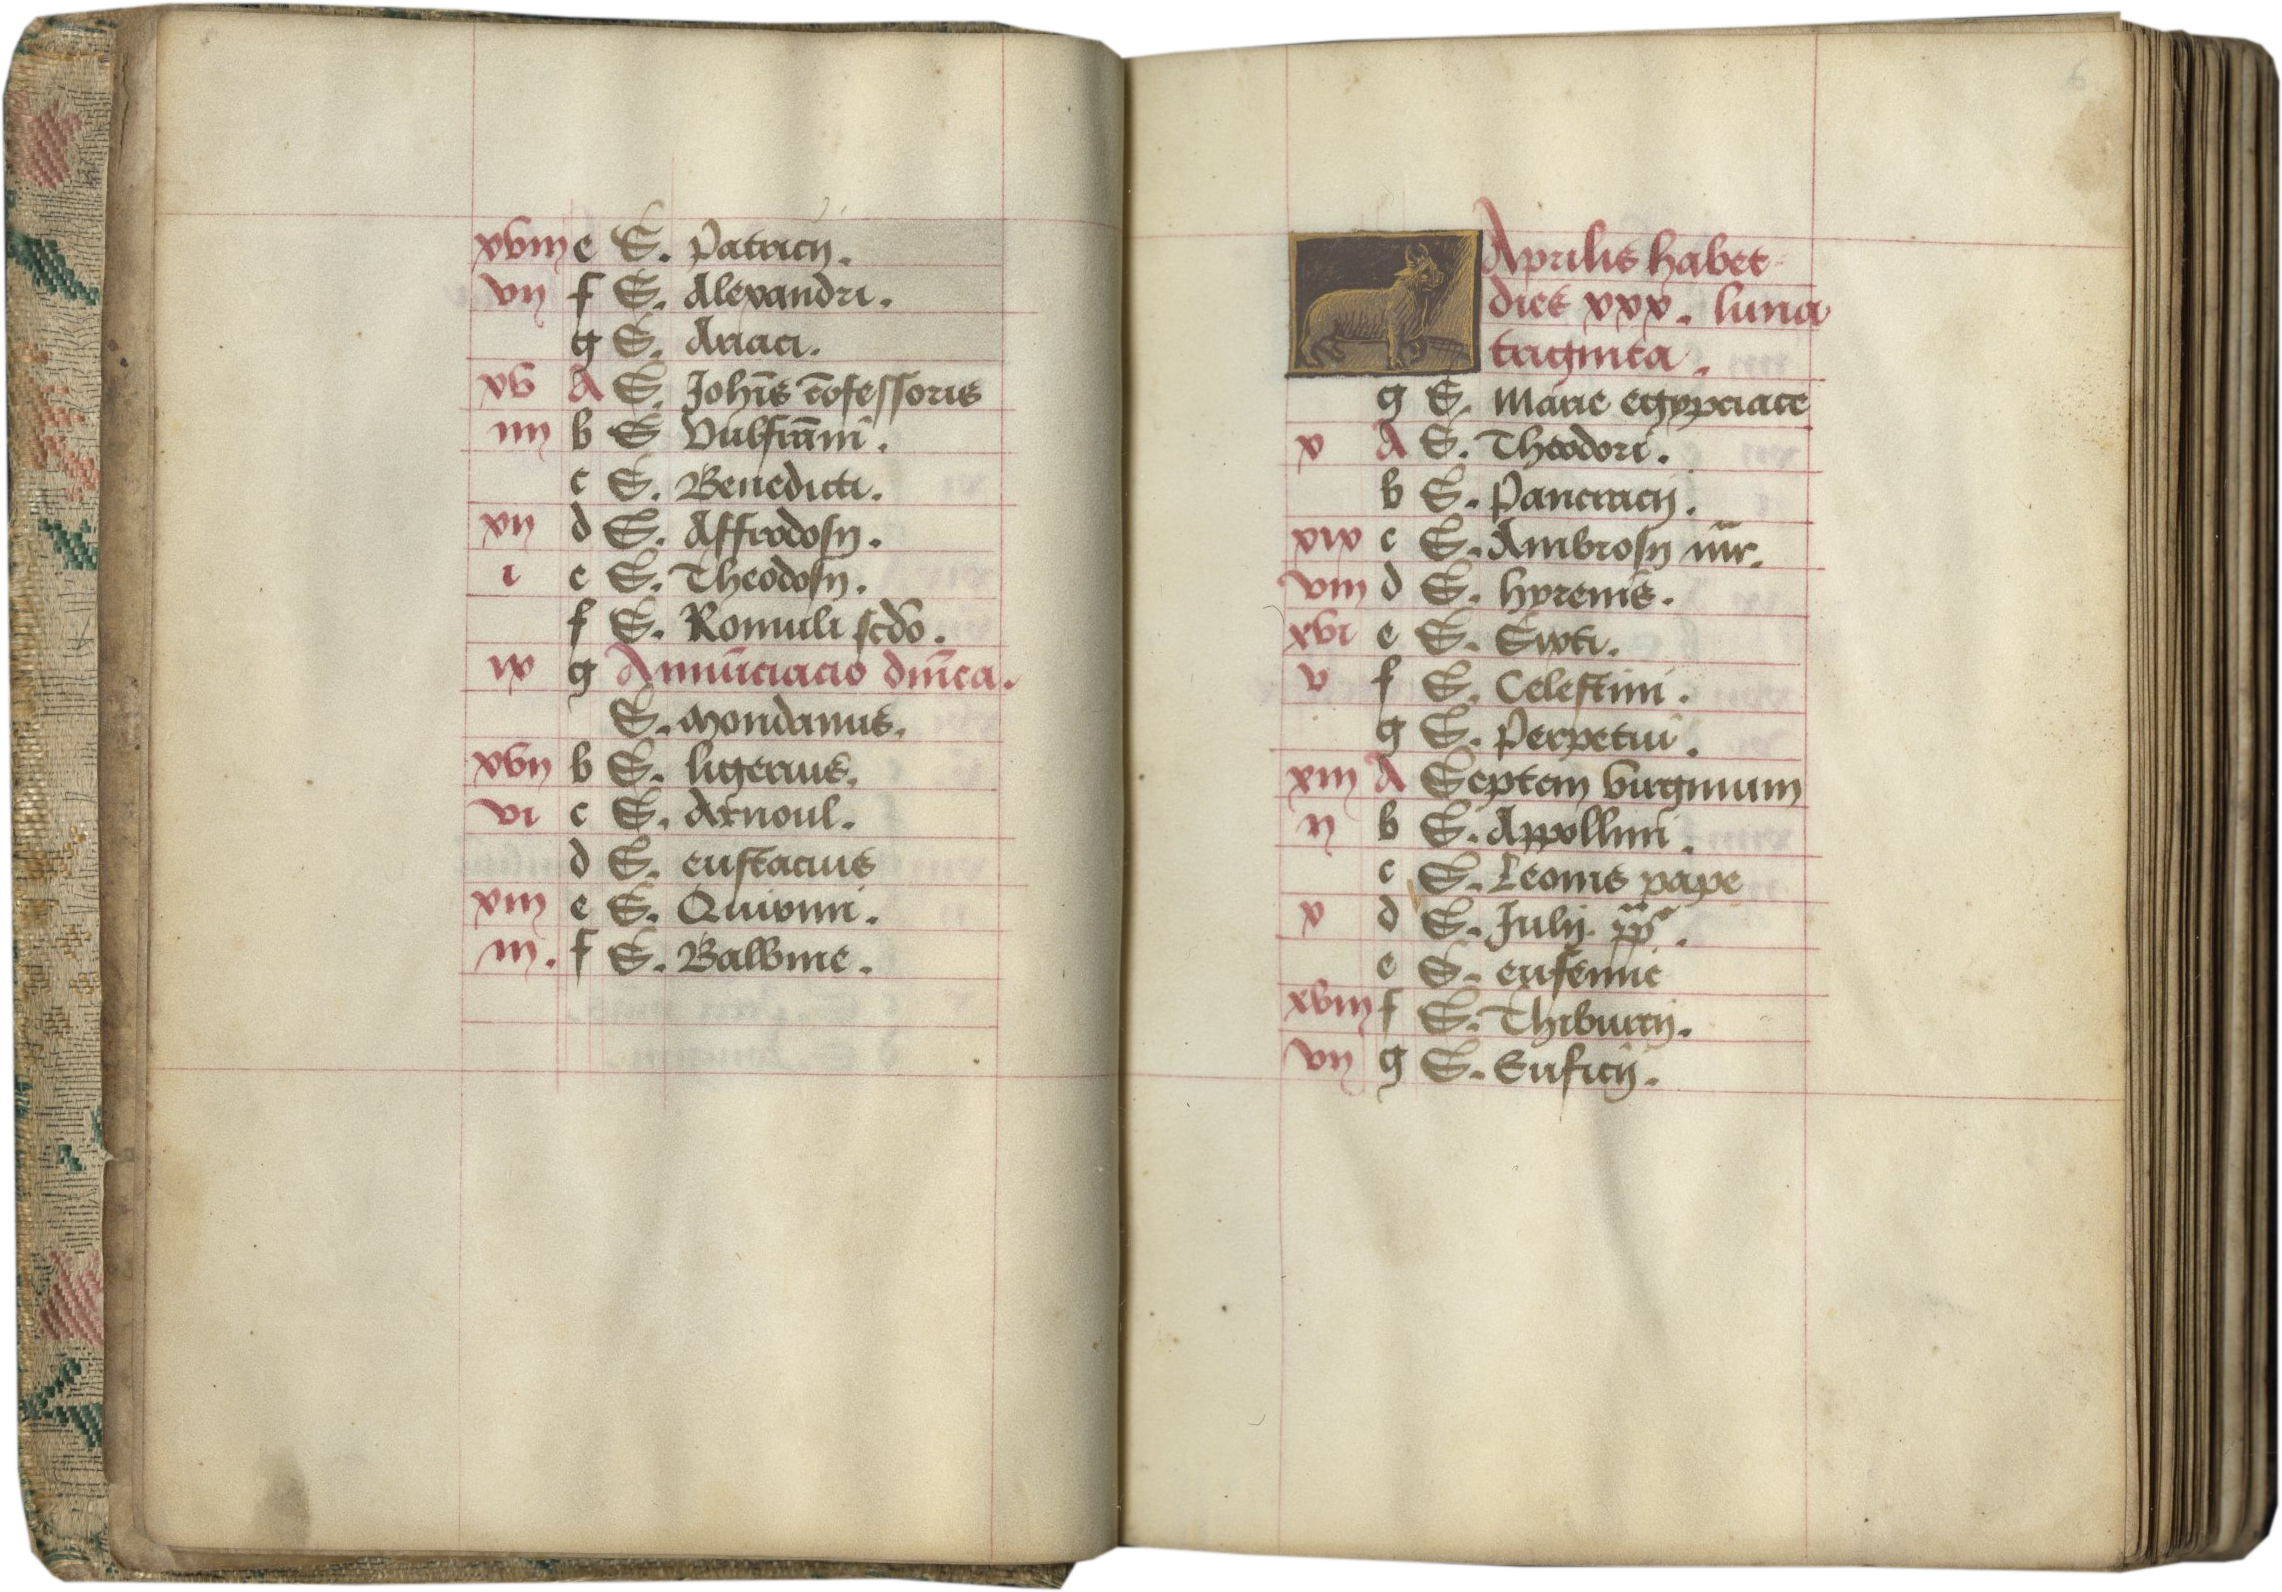 xvııı e S. Patricij.
vıj f S. Alexandri.
g S. Ariaci.
xv A S. Joħıs ɔ̄fessoris
ıııj b S Vulfrāni.
c S. Benedicti.
xıj d S. Affrodosij.
ı e S. Theodosij.
f S. Romuli scdo.
ıx g Annūciacio dnīca.
S. mondanus.
xvıj b S. ligerius.
vı c S. Arnoul.
d S. eustacius
xııı e S. Quirini.
ııj. f S. Balbine.
6
Aprilis habet
dies xxx. luna
triginta.
g S. Marie egypciace
x A S. Theodori.
b S. Pancracij.
xıx c S. Ambrosij mr̄.
vııı d S. hyrenis.
xvı e S. Sixti.
v f S. Celestini.
g S. Perpetui.
xııj A Septem virginum
ıj b S. Appollini.
c S. Leonis pape
x d S. Julij. pp̄.
e S. eufemie
xvııı f S. Thiburcij.
vıj g S. Euficij.